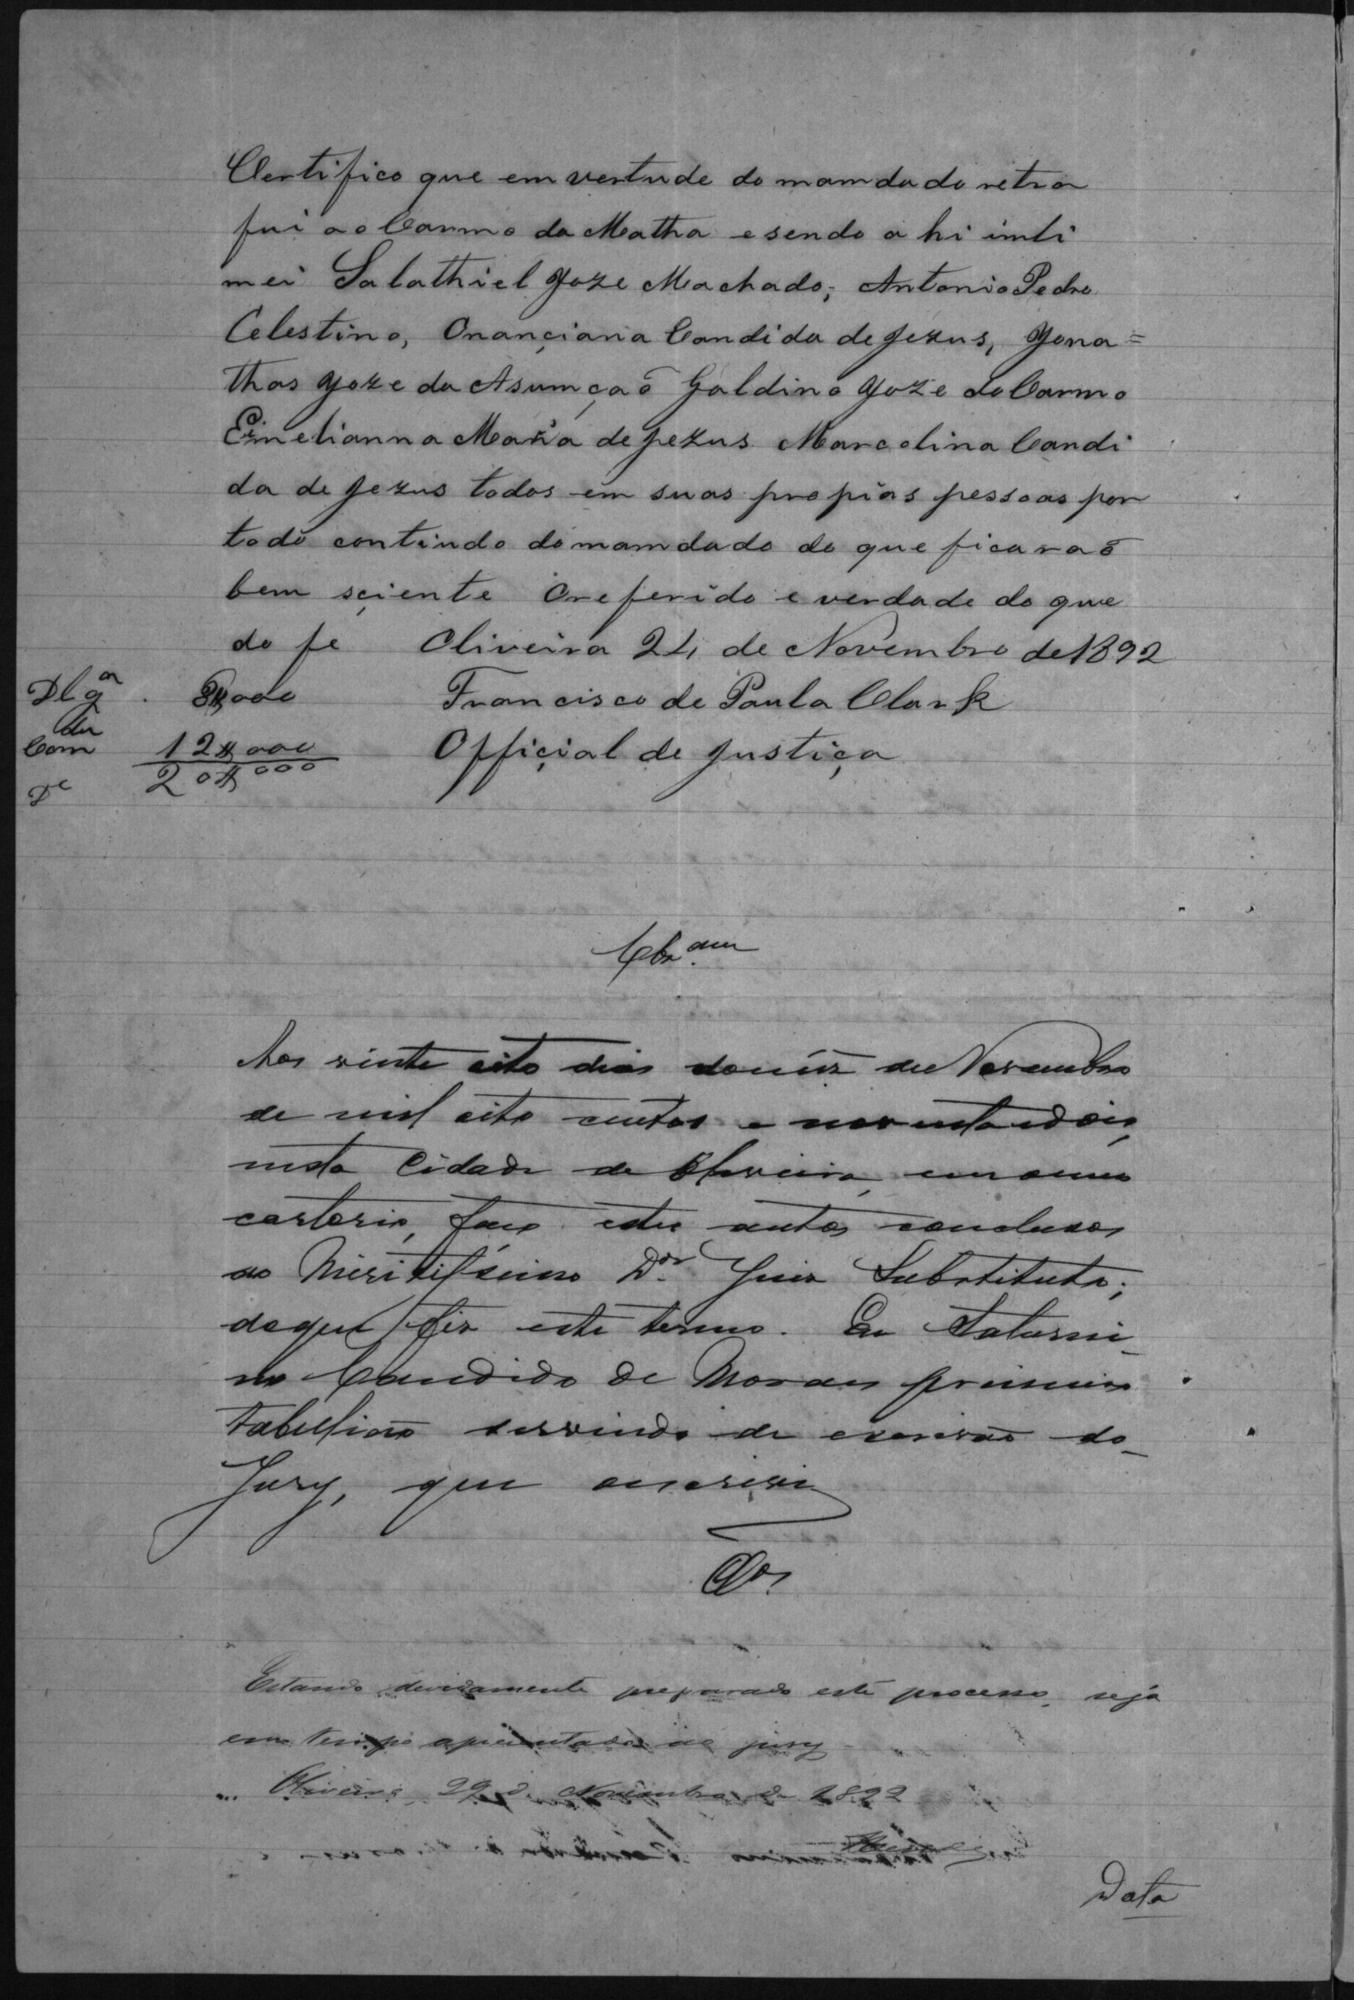 Certifico que em vertude do mamdado retro
fui ao Carmo da Matha e sendo a hi imti
mei Salathiel Joze Machado, Antonio Pedro
Celestino, Onançiana Candida de Jezus, Jona=
thas Joze da Asumçaõ Galdino Joze do Carmo
Emelianna Maria de Jezus Marcolina Candi
da de Jezus todos em suas propias pessoas por
todo contiudo do mamdado do que ficaraõ
bem sçiente O referido e verdade do que
do fe Oliveira 24 de Novembro de 1892
Dlgª 8$000 Francisco de Paula Clark
Com 12$000 Offiçial de Justiça
20$000
Aos vinte oito dias do mez de Novembro
de mil oito centos e noventa e dois,
nesta Cidade de Oliveira, em meu
cartorio, faço estes autos conclusos
ao Meritissimo Dor Juiz Substituto;
do que fiz este termo. Eu Saturni-
no Candido de Moraes primeiro
tabellião servindo de escrivão do-
Jury, que escrevi
Clos
Estando devidamente preparado este processo, seja
em tempo apresentado ao jury
Oliveira 29 de Novembro de 1892
Data